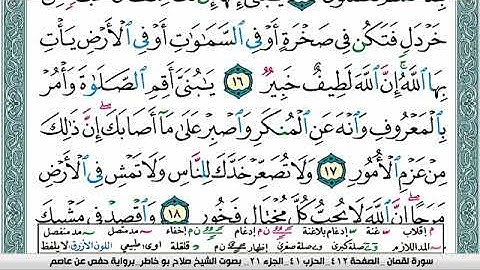 خَرْدَلٍ فَتَكُن فِى صَخْرَةٍ أَوْ فِى ٱلسَّمَٰوَٰتِ أَوْ فِى ٱلْأَرْضِ يَأْتِ
بِهَا ٱللَّهُ ۚ إِنَّ ٱللَّهَ لَطِيفٌ خَبِيرٌ ١٦ يَٰبُنَىَّ أَقِمِ ٱلصَّلَوٰةَ وَأْمُرْ
بِٱلْمَعْرُوفِ وَٱنْهَ عَنِ ٱلْمُنكَرِ وَٱصْبِرْ عَلَىٰ مَآ أَصَابَكَ ۖ إِنَّ ذَٰلِكَ
مِنْ عَزْمِ ٱلْأُمُورِ ١٧ وَلَا تُصَعِّرْ خَدَّكَ لِلنَّاسِ وَلَا تَمْشِ فِى ٱلْأَرْضِ
مَرَحًا ۖ إِنَّ ٱللَّهَ لَا يُحِبُّ كُلَّ مُخْتَالٍ فَخُورٍ ١٨ وَٱقْصِدْ فِى مَشْيِكَ
م إقلاب غنة إدغام بلاغنة ن م إدغام ن م إخفاء مد متصل مد منفصل
المد اللازم صلة كبرى إظهار ن م قلقلة أوى: طبيعي اللون الأزرق لا يلفظ
سورة لقمان _الصفحة ٤١٢_ الحزب ٤١_ الجزء ٢١_ بصوت الشيخ صلاح بو خاطر_برواية حفص عن عاصم